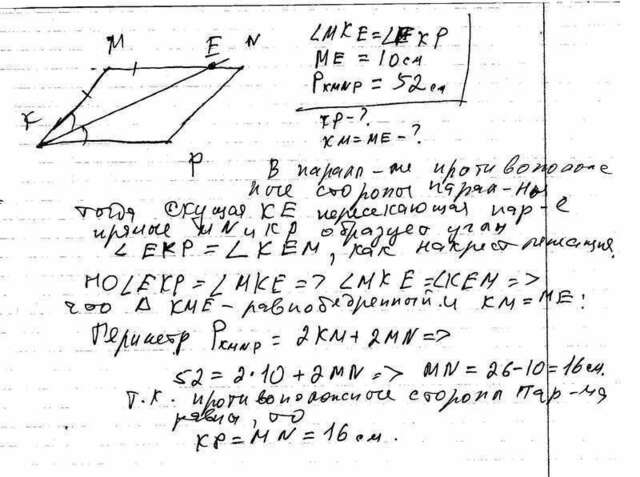 M E N
K
P
∠MKE=∠EKP
ME = 10 см
P KMNP = 52 см
KP-?
KM=ME-?
В паралл-ме противополож
ные стороны парал-ны
тогда секущая KE пересекающая пар-е
прямые MN и KP образует углы
∠EKP = ∠KEM, как накрест лежащие.
НО ∠EKP = ∠MKE => ∠MKE = ∠KEM =>
что Δ KME - равнобедренный и KM = ME.
Периметр P KMNP = 2KM + 2MN =>
52 = 2·10 + 2MN => MN = 26-10 = 16 см.
Т.к. противоположные стороны пар-ма
равны, то
KP = MN = 16 см.